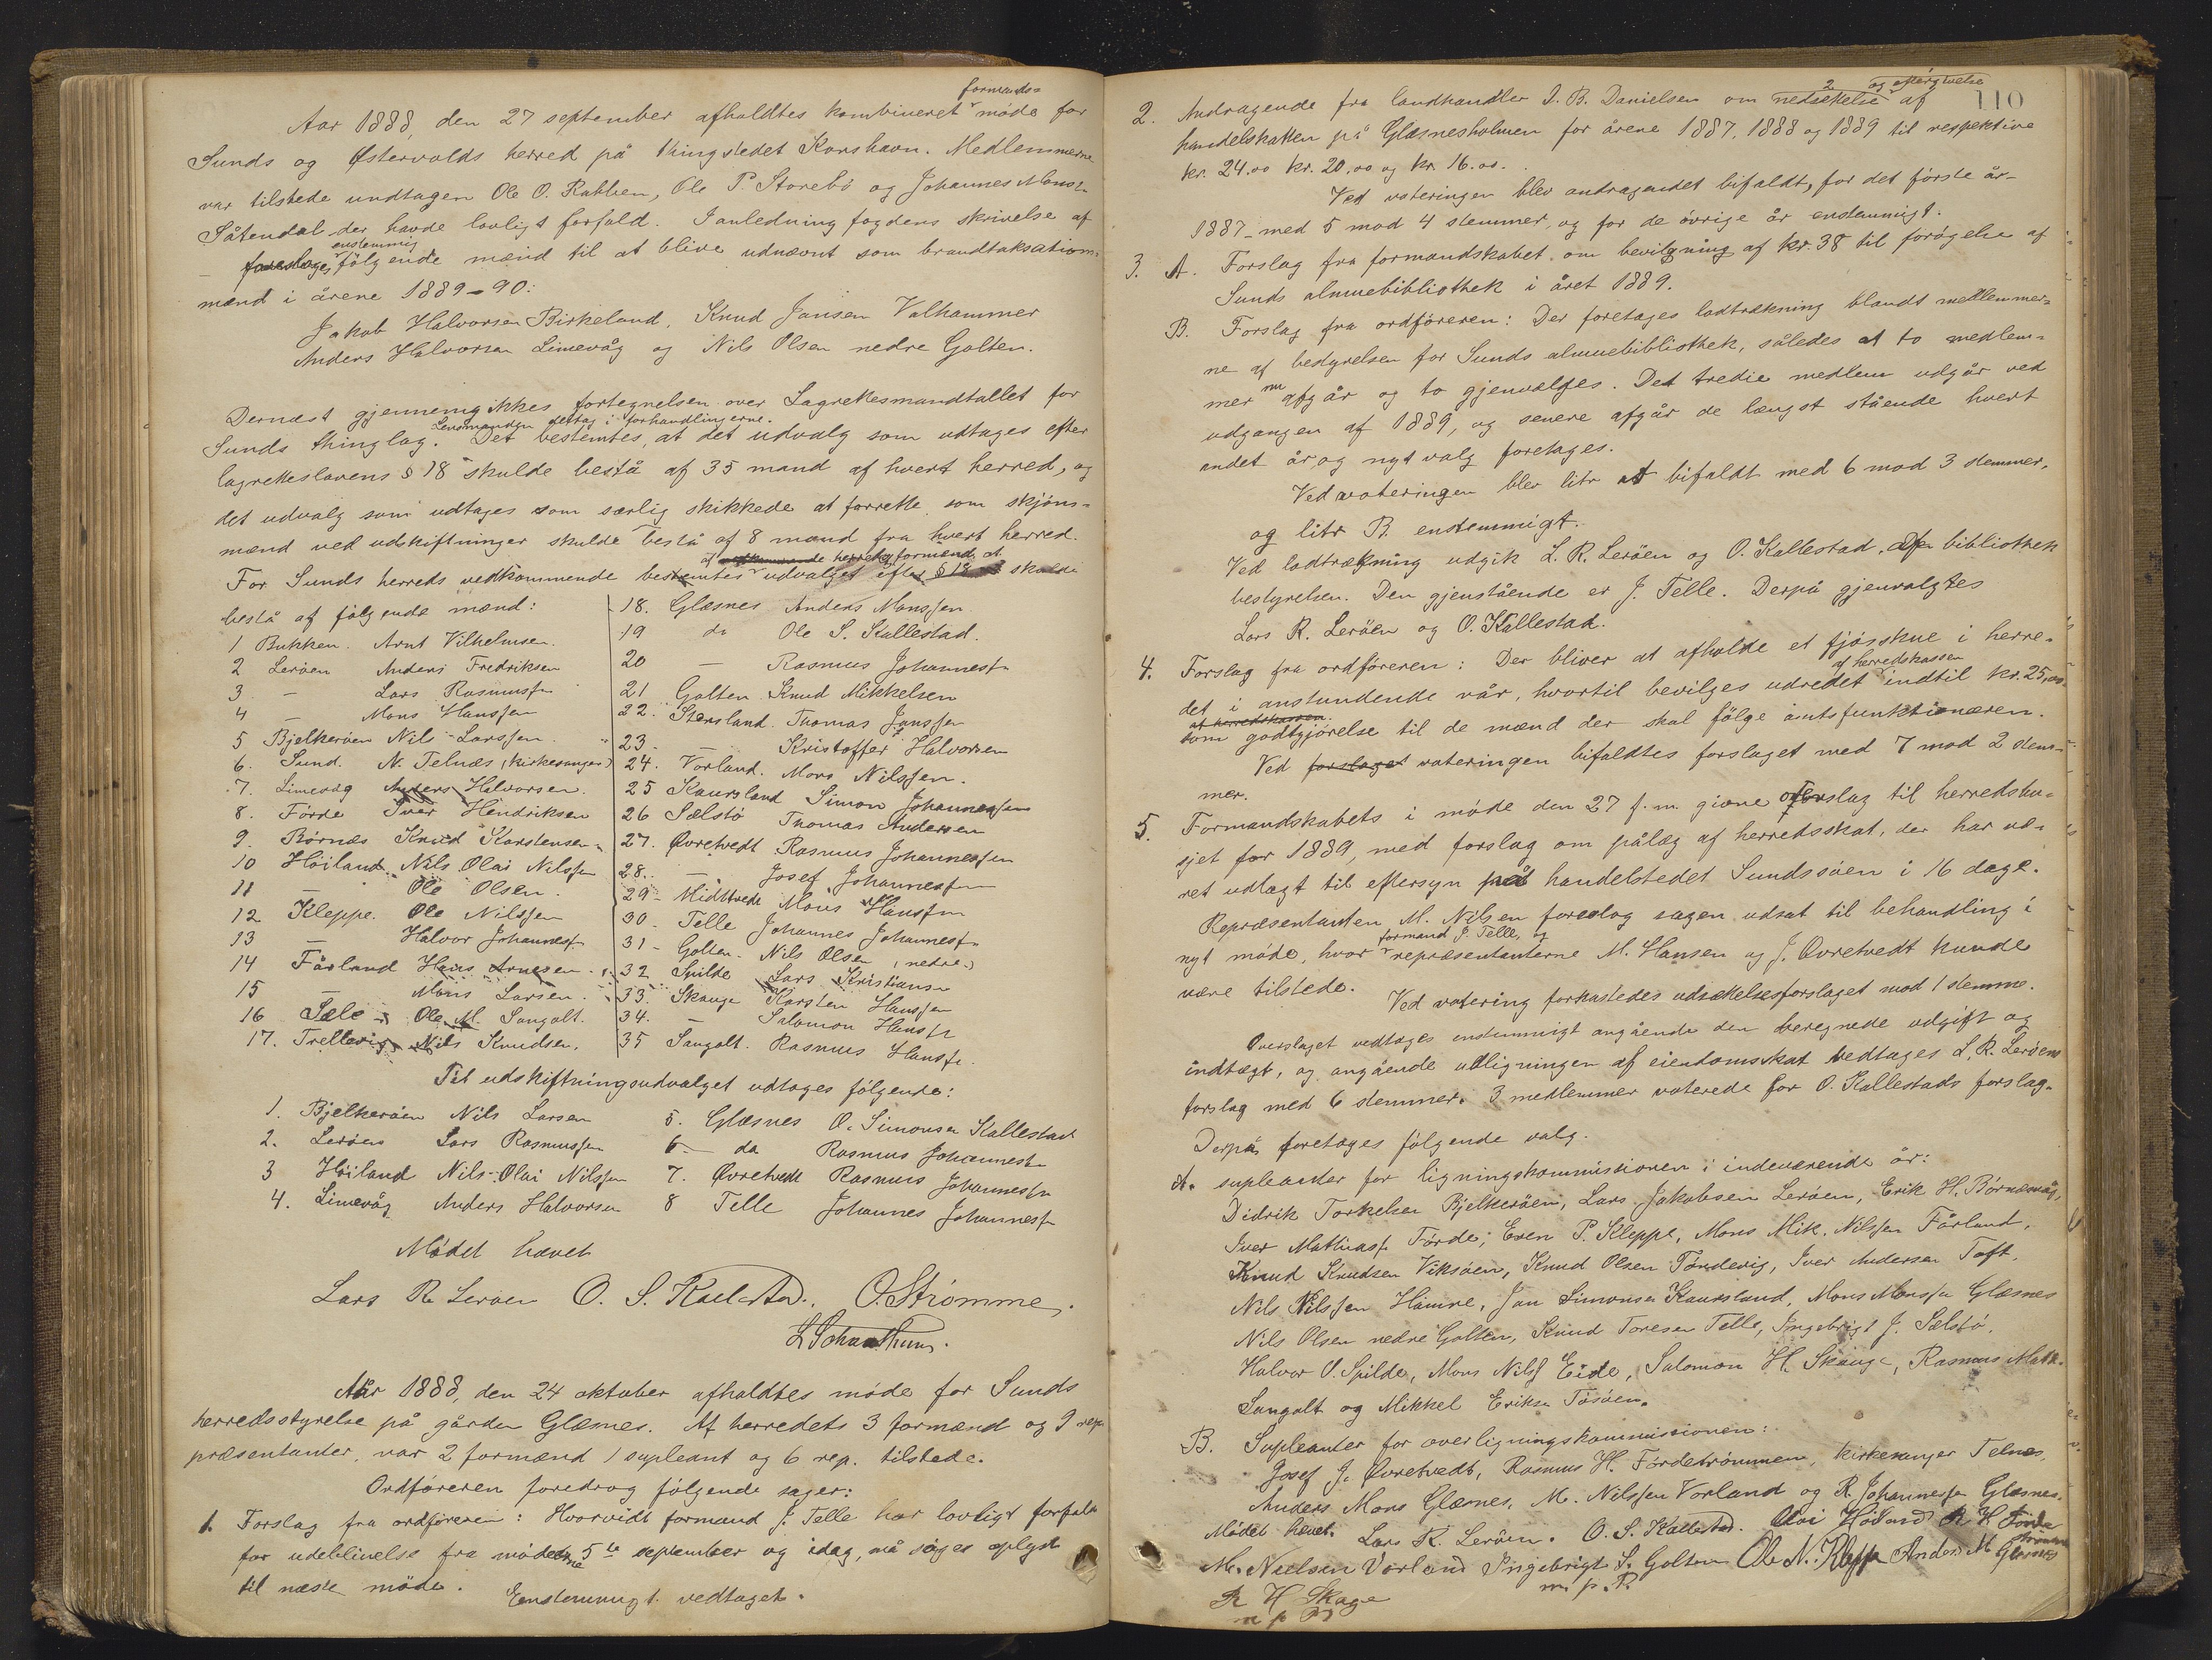 formands=
Aar 1888, den 27 september afholdtes kombineret møde for
Sunds og Østervolds herred på thingstedet Korshavn. Medlemmerne
var tilstede undtagen Ole O. Rabben, Ole P. Storebö og Johannes Monss.
Såtendal der havde lovligt forfald. I anledning fogdens skrivelse af
enstemmig
– foreslages følgende mænd til at blive udnævnt som brandtaksations-
mænd i årene 1889-90:
Jakob Halvorsen Birkeland, Knud Jansen Valhammer
Anders Halvorsen Limevåg og Nils Olsen nedre Golten.
Dernæst gjennemgikkes fortegnelsen over Lagrettesmandtallet for
Lensmanden deltog i forhandlingerne.
Sunds thinglag. Det bestemtes, at det udvalg som udtages efter
lagretteslovens § 18 skulde bestå af 35 mand af hvert herred, og
det udvalg som udtages som særlig skikkede at forrette som skjøns=
mænd ved udskiftninger skulde bestå af 8 mænd fra hvert herred.
af vedkommende herreds formænd, at
For Sunds herreds vedkommende bestemtes udvalget efter § 18 skulde
bestå af følgende mænd:
1 Bukken. Arnt Vilhelmsen.
2 Leröen Anders Fredriksen
3 – Lars Rasmussen
4 – Mons Hanssen
5 Bjelkeröen Nils Larssen.
6. Sund. N. Telnæs (kirkesanger)
7. Limevåg Anders Halvorsen.
8. Förde Iver Hendriksen
9. Börnæs Knud Karstensen
10 Höiland. Nils Olai Nilssen
11 – Ole Olsen.
12 Kleppe. Ole Nilssen
13 – Halvor Johanness.
14 Fårland Hans Arnesen.
15 – Mons Larsen.
16 Sele Ole M. Sangolt.
17. Trellevig Nils Knudsen.
18. Glæsnes Anders Monssen
19 do Ole S. Kallestad.
20 – Rasmus Johanness.
21 Golten Knud Mikkelsen
22. Stensland. Thomas Janssen
23 – Kristoffer Halvorsen
24. Vorland. Mons Nilssen.
25 Kaursland Simon Johannessen
26 Sælstö Thomas Andersen
27. Øvretvedt Rasmus Johannessen
28. – Josef Johannessen
29 – Midttvedt Mons Hanssen
30. Telle Johannes Johanness.
31 – Golten. Nils Olsen (nedre.)
32 Spilde Lars Kristiansen
33. Skauge Karsten Hanssen
34. – Salomon Hanss.
35 Sangolt. Rasmus Hanss.
Til udskiftningsudvalget udtages følgende:
1. Bjelkeröen Nils Larsen
2. Leröen Lars Rasmussen
3 Höiland Nils Olai Nilssen
4. Limevåg Anders Halvorsen
5. Glæsnes O. Simonsen Kallestad
6 – do Rasmus Johanness.
7. Øvretvedt Rasmus Johannessen
8 Telle Johannes Johanness.
Mödet hævet
Lars R. Leröen O. S. Kallestad. O. Strömme.
Aår 1888, den 24 oktober afholdtes møde for Sunds
herredsstyrelse på gården Glæsnes. Af herredets 3 formænd og 9 re-
præsentanter, var 2 formænd 1 supleant og 6 rep. tilstede.
Ordføreren foredrog følgende sager:
1. Forslag fra ordføreren: Hvorvidt formand J. Telle har lovligt forfald
for udeblivelse fra møderne 5te september og idag, må søges oplyst
til næste møde. Enstemmigt vedtaget.
110
2 og eftergivelse
2. Andragende fra landhandler D. B. Danielsen om nedsættelse af
handelskatten på Glæsnesholmen for årene 1887, 1888 og 1889 til respektive
kr. 24.00 kr. 20,00 og kr. 16.00.
Ved voteringen blev andragendet bifaldt, for det förste år –
1887 – med 5 mod 4 stemmer, og for de övrige år enstemmigt.
3. A. Forslag fra formandskabet om bevilgning af kr. 38 til forögelse af
Sunds almuebibliothek i året 1889.
B. Forslag fra ordföreren: Der foretages lodtrækning blandt medlemmer=
ne af bestyrelsen for Sunds almuebibliothek, således at to medlem=
mer nu afgår og to gjenvælges. Det tredie medlem udgår ved
udgangen af 1889, og senere afgår de længst stående hvert
andet år, og nyt valg foretages.
Ved voteringen blev litr A bifaldt med 6 mod 3 stemmer,
og litr B. enstemmigt.
Ved lodtrækning udgik L. R. Leröen og O. Kallestad, af bibliothek
bestyrelsen. Den gjenstående er J. Telle. Derpå gjenvalgtes
Lars R. Leröen og O. Kallestad.
4. Forslag fra ordföreren: Der bliver at afholde et fjösskue i herre-
af herredskassen
det i anstundende vår, hvortil bevilges udredet indtil kr. 25,00
af herredskassen
som godtgjörelse til de mænd der skal fölge amtsfunktionæren.
Ved forslaget voteringen bifaldtes forslaget med 7 mod 2 stem-
mer.
5. Formandskabets i møde den 27 f. m. givne overslag til herredsbu-
sjet for 1889, med forslag om pålæg af herredsskat, der har væ-
ret udlagt til eftersyn på handelstedet Sundssöen i 16 dage.
Repræsentanten M. Nilsen foreslog sagen udsat til behandling i
formand J. Telle, og
nyt møde, hvor repræsentanterne M. Hansen og J. Øvretvedt kunde
være tilstede.
Ved votering forkastedes udsættelsesforslaget mod 1 stemme.
Overslaget vedtages enstemmigt angående den beregnede udgift og
indtægt, og angående udligningen af eiendomsskat vedtages L. R. Leröens
forslag med 6 stemmer. 3 medlemmer voterede for O. Kallestads forslag.
Derpå foretages fölgende valg.
A. supleanter for ligningskommissionen i indeværende år:
Didrik Torkelsen Bjelkeröen, Lars Jakobsen Leröen, Erik H. Börnæsvåg,
Iver Mathiass. Förde, Even P. Kleppe, Mons Mik. Nilssen Fårland,
Knud Knudsen Viksöen, Knud Olsen Töndevig, Iver Andersen Toft,
Nils Nilssen Hamre, Jan Simonsen Kaursland, Mons Monssen Glæsnes
Nils Olsen nedre Golten, Knud Toresen Telle, Ingebrigt J. Sælstö,
Halvor O. Spilde, Mons Nilss Eide, Salomon H. Skauge, Rasmus Math.
Sangolt og Mikkel Eriksen Tösöen.
B. Supleanter for overligningskommissionen:
Josef J. Øvretvedt, Rasmus H. Fördeströmmen, kirkesanger Telnes,
Anders Mons Glæsnes, M. Nilssen Vorland og R. Johannessen Glæsnes.
Mödet hævet. Lars R. Leröen. O. S. Kallestad. Olai Höiland R H Förde
strömmen
M. Nielsen Vorland Ingebrigt S. Golten Ole N. Kleppe Anders M Glæsnes
m. p. P.
R H Skage
m p P